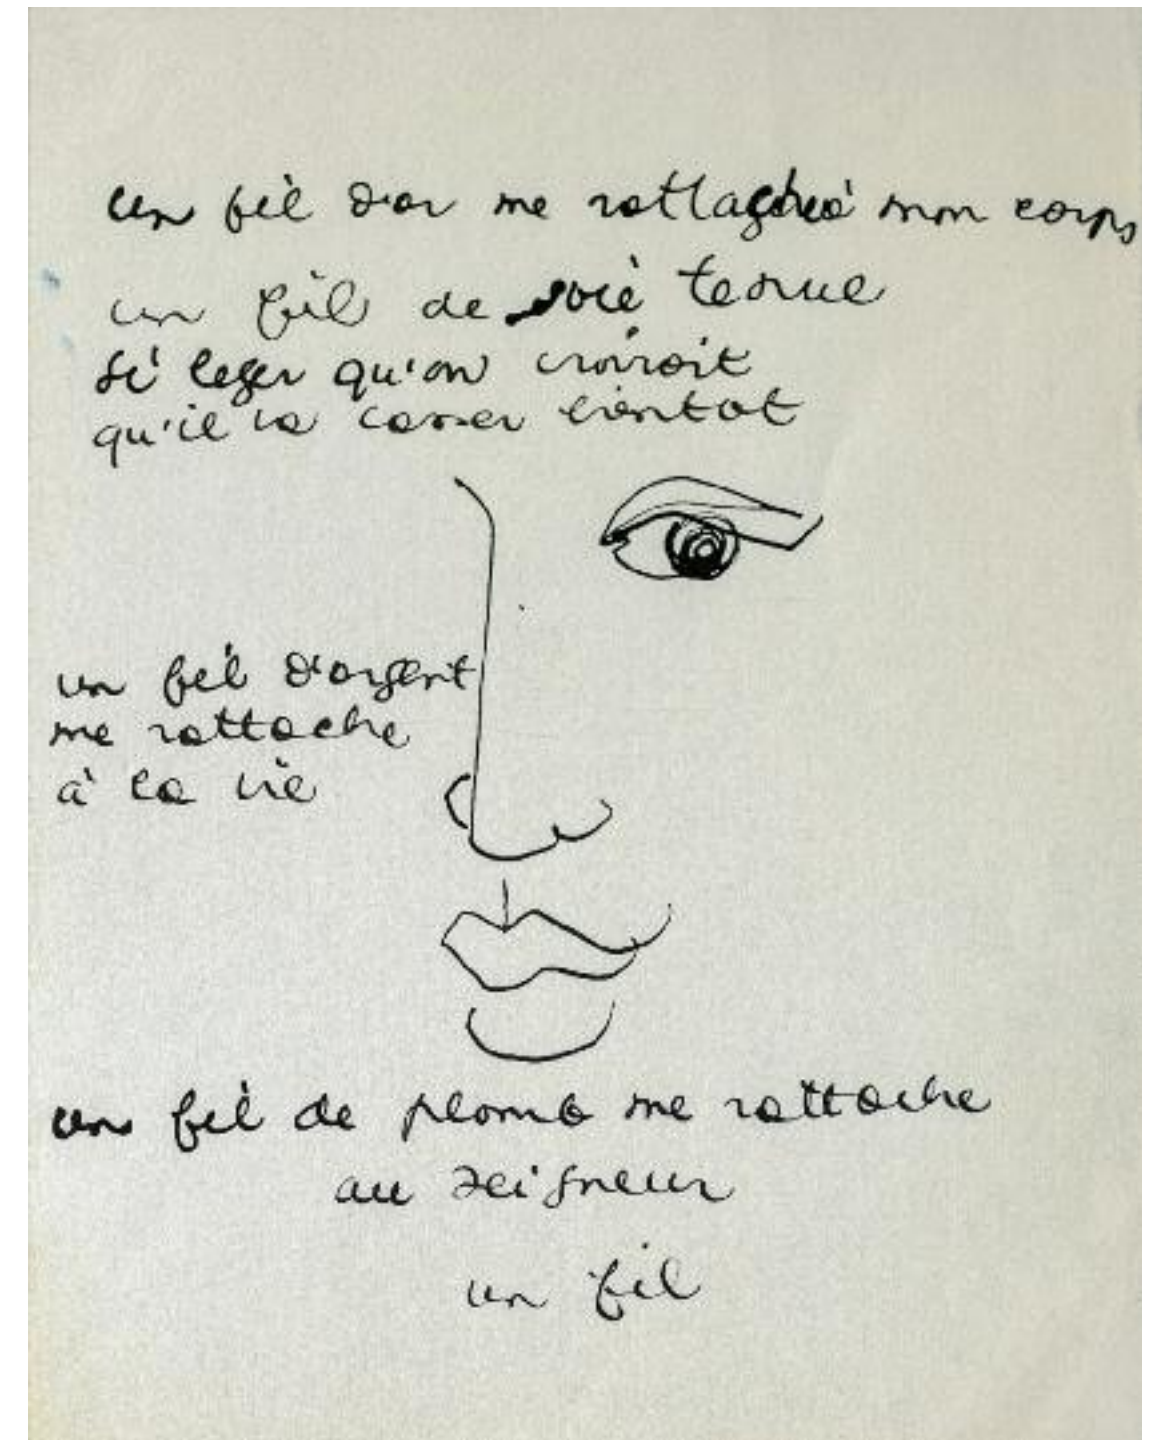 un fil d'or me rattache à mon corps
un fil de soie tenue
si leger qu'on croiroit
qu'il va casser bientot
un fil d'argent
me rattache
à la vie
un fil de plomb me rattache
au seigneur
un fil